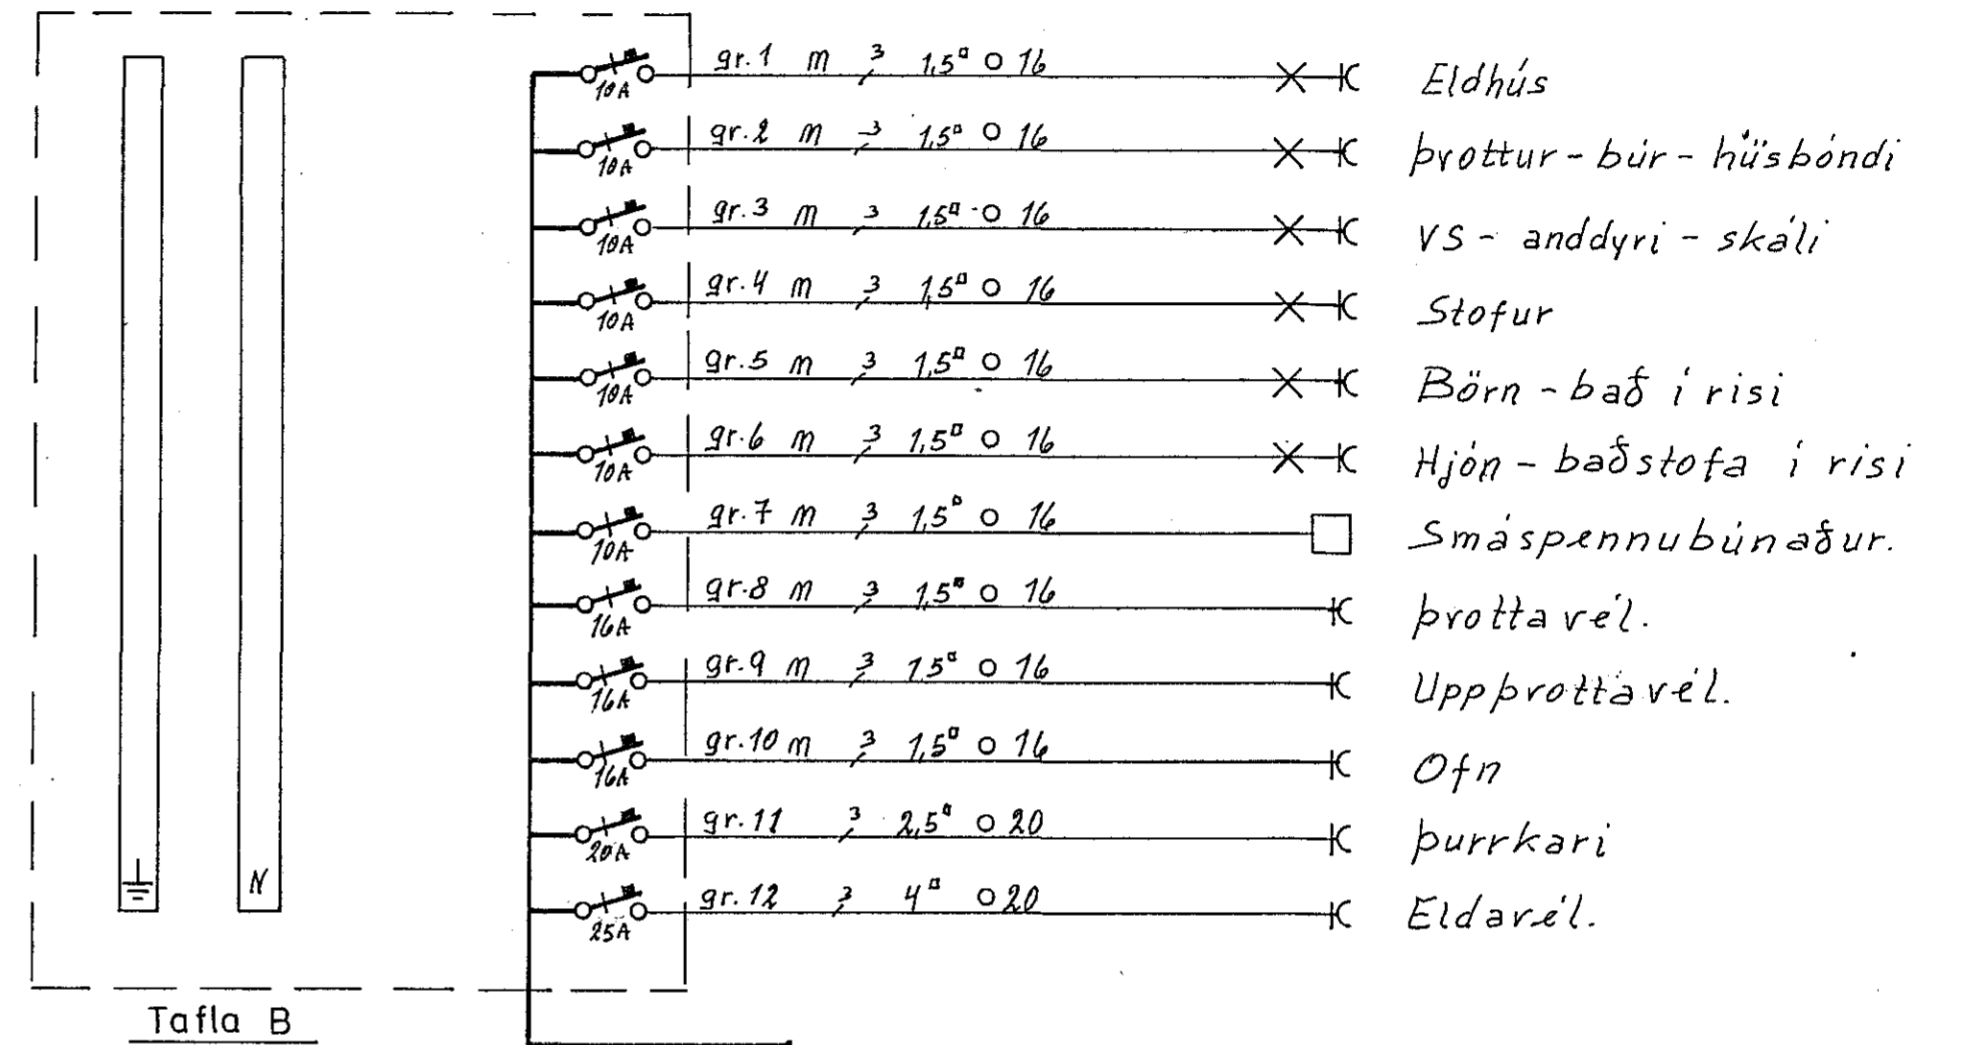 gr.1 m 3 1,5▫ ○ 16 Eldhús
10A
gr.2 m 3 1,5▫ ○ 16 þvottur - búr - húsbóndi
10A
gr.3 m 3 1,5▫ ○ 16 VS - anddyri - skáli
10A
gr.4 m 3 1,5▫ ○ 16 Stofur
10A
gr.5 m 3 1,5▫ ○ 16 Börn - bað í risi
10A
gr.6 m 3 1,5▫ ○ 16 Hjón - baðstofa í risi
10A
gr.7 m 3 1,5▫ ○ 16 Smáspennubúnaður.
10A
gr.8 m 3 1,5▫ ○ 16 þvottavél.
16A
gr.9 m 3 1,5▫ ○ 16 Uppþvottavél.
16A
gr.10 m 3 1,5▫ ○ 16 Ofn
16A
gr.11 3 2,5▫ ○ 20 þurrkari
20A
gr.12 3 4▫ ○ 20 Eldavél.
25A
N
Tafla B